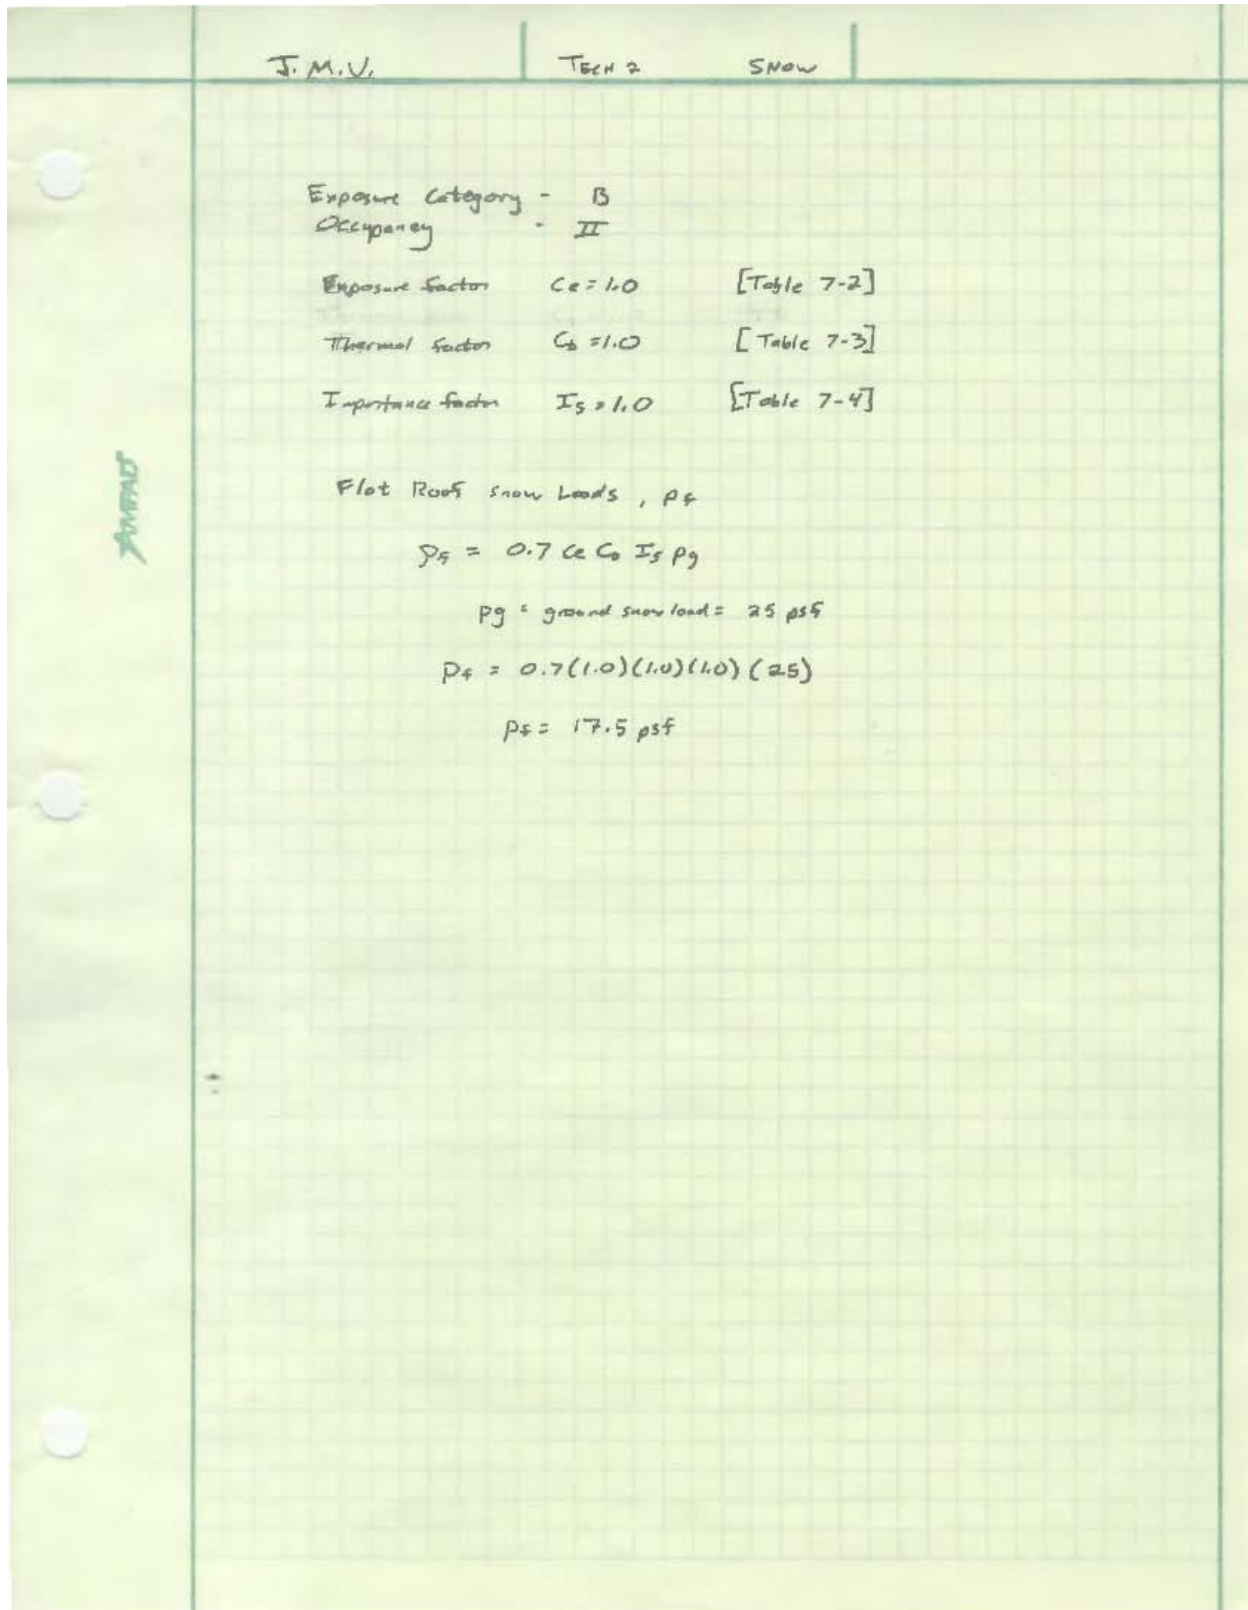 J.M.V. TECH 2 SNOW
Exposure Category - B
Occupancy - II
Exposure factor Ce = 1.0 [Table 7-2]
Thermal factor Ct = 1.0 [Table 7-3]
Importance factor Is = 1.0 [Table 7-4]
AMPAD
Flat Roof Snow Loads, pf
pf = 0.7 Ce Ct Is pg
pg = ground snow load = 25 psf
pf = 0.7(1.0)(1.0)(1.0)(25)
pf = 17.5 psf